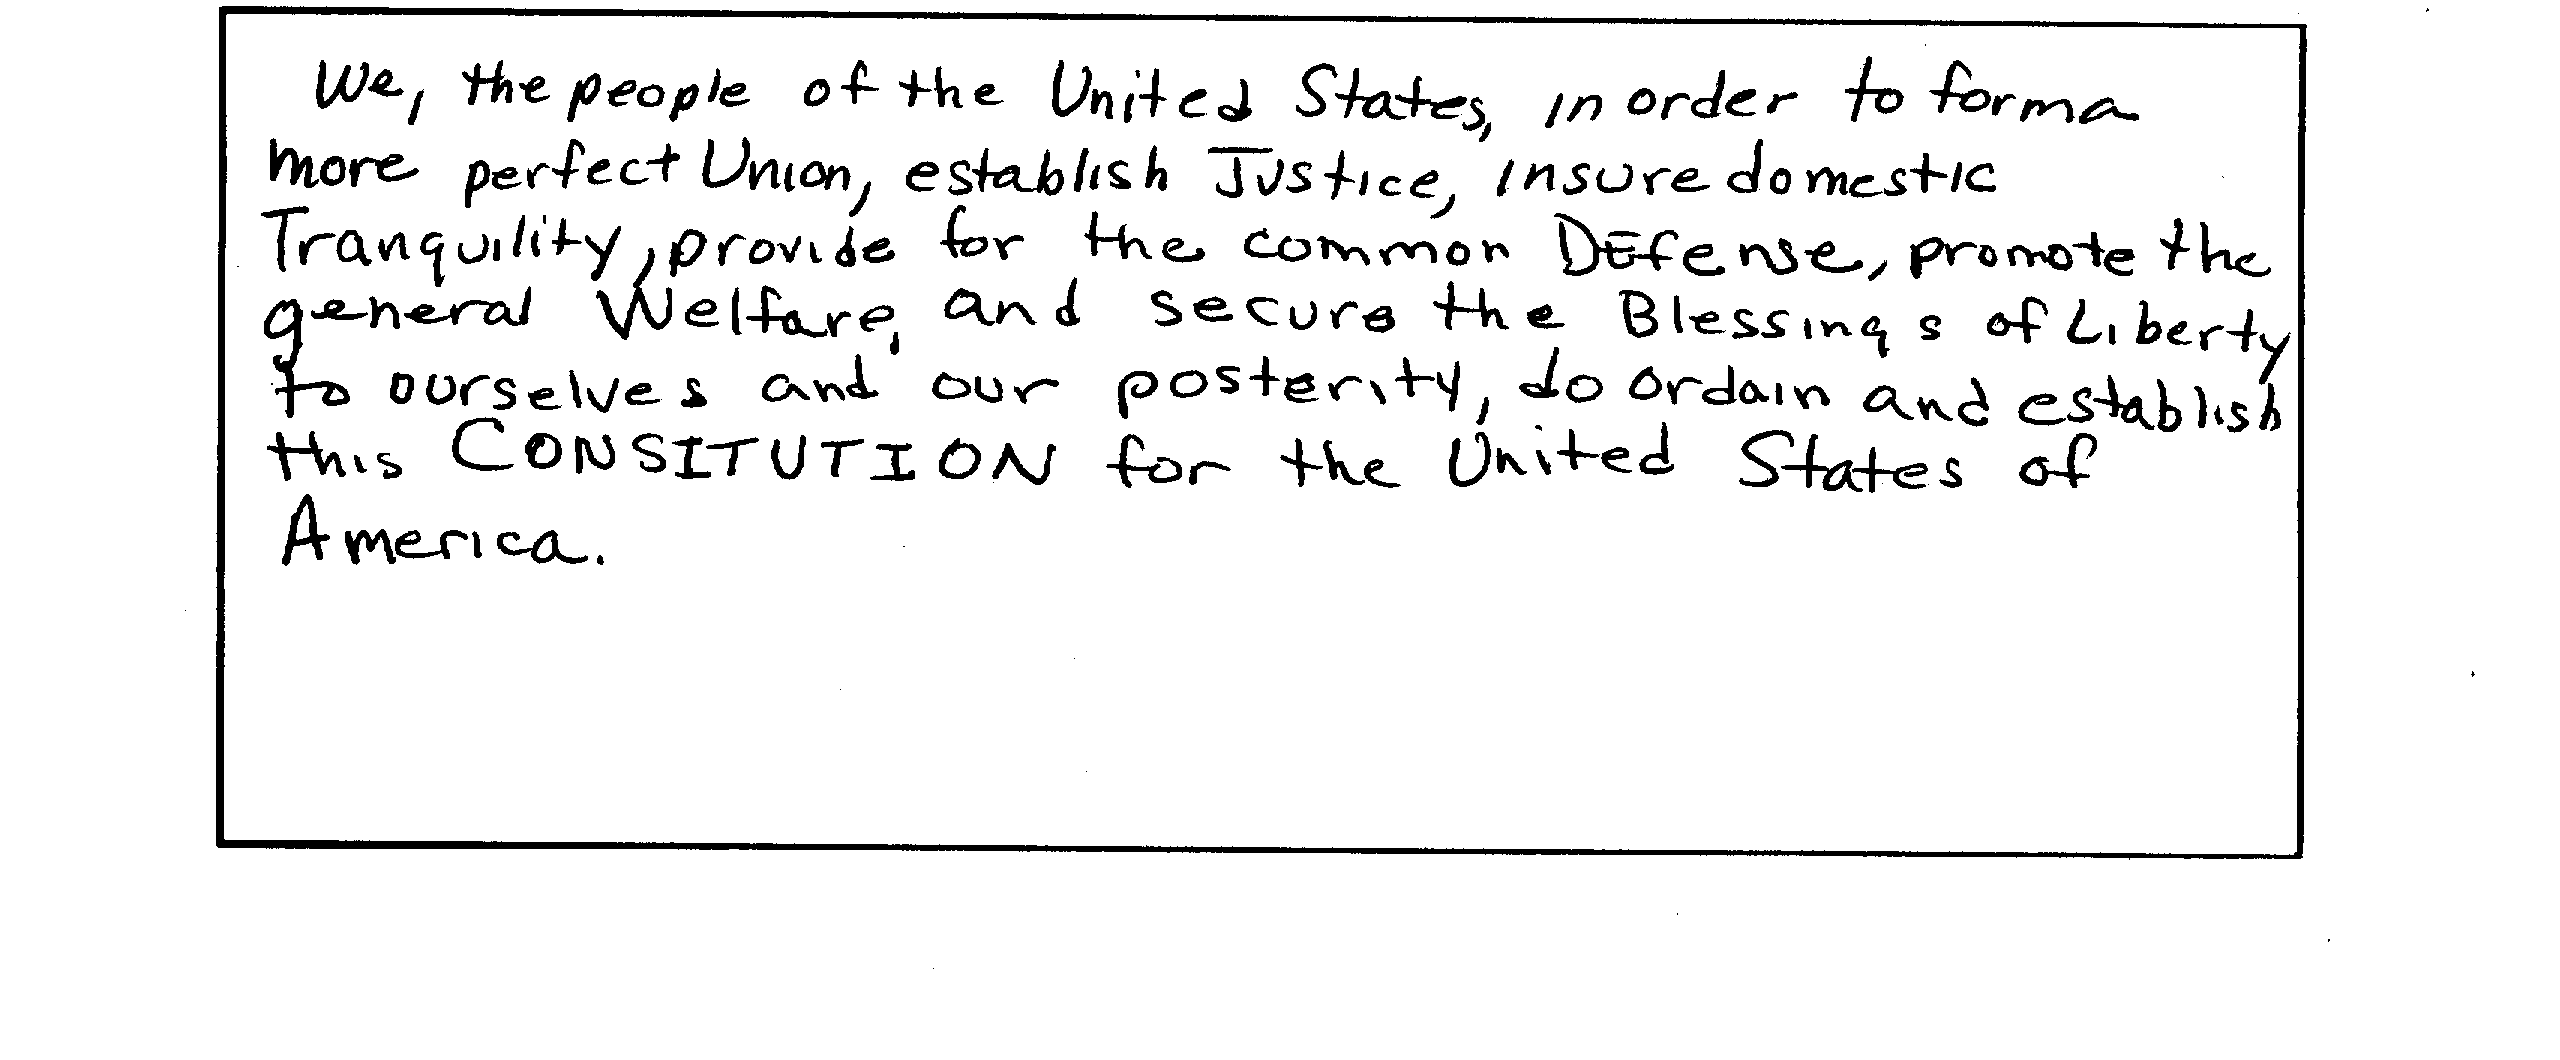 We, the people of the United States, in order to form a
more perfect Union, establish Justice, insure domestic
Tranquility, provide for the common Defense, promote the
general Welfare, and secure the Blessings of Liberty
to ourselves and our posterity, do ordain and establish
this CONSITUTION for the United States of
America.